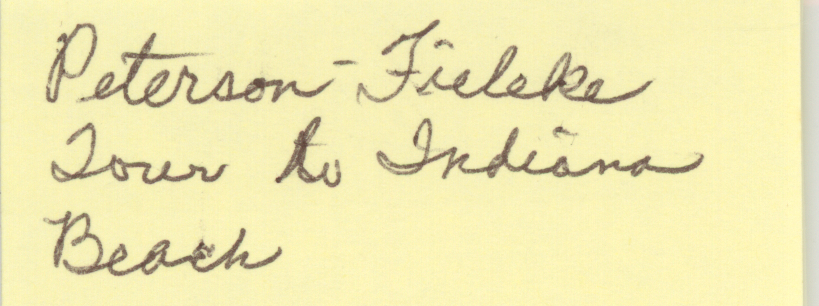 Peterson-Fieleke
Tour to Indiana
Beach